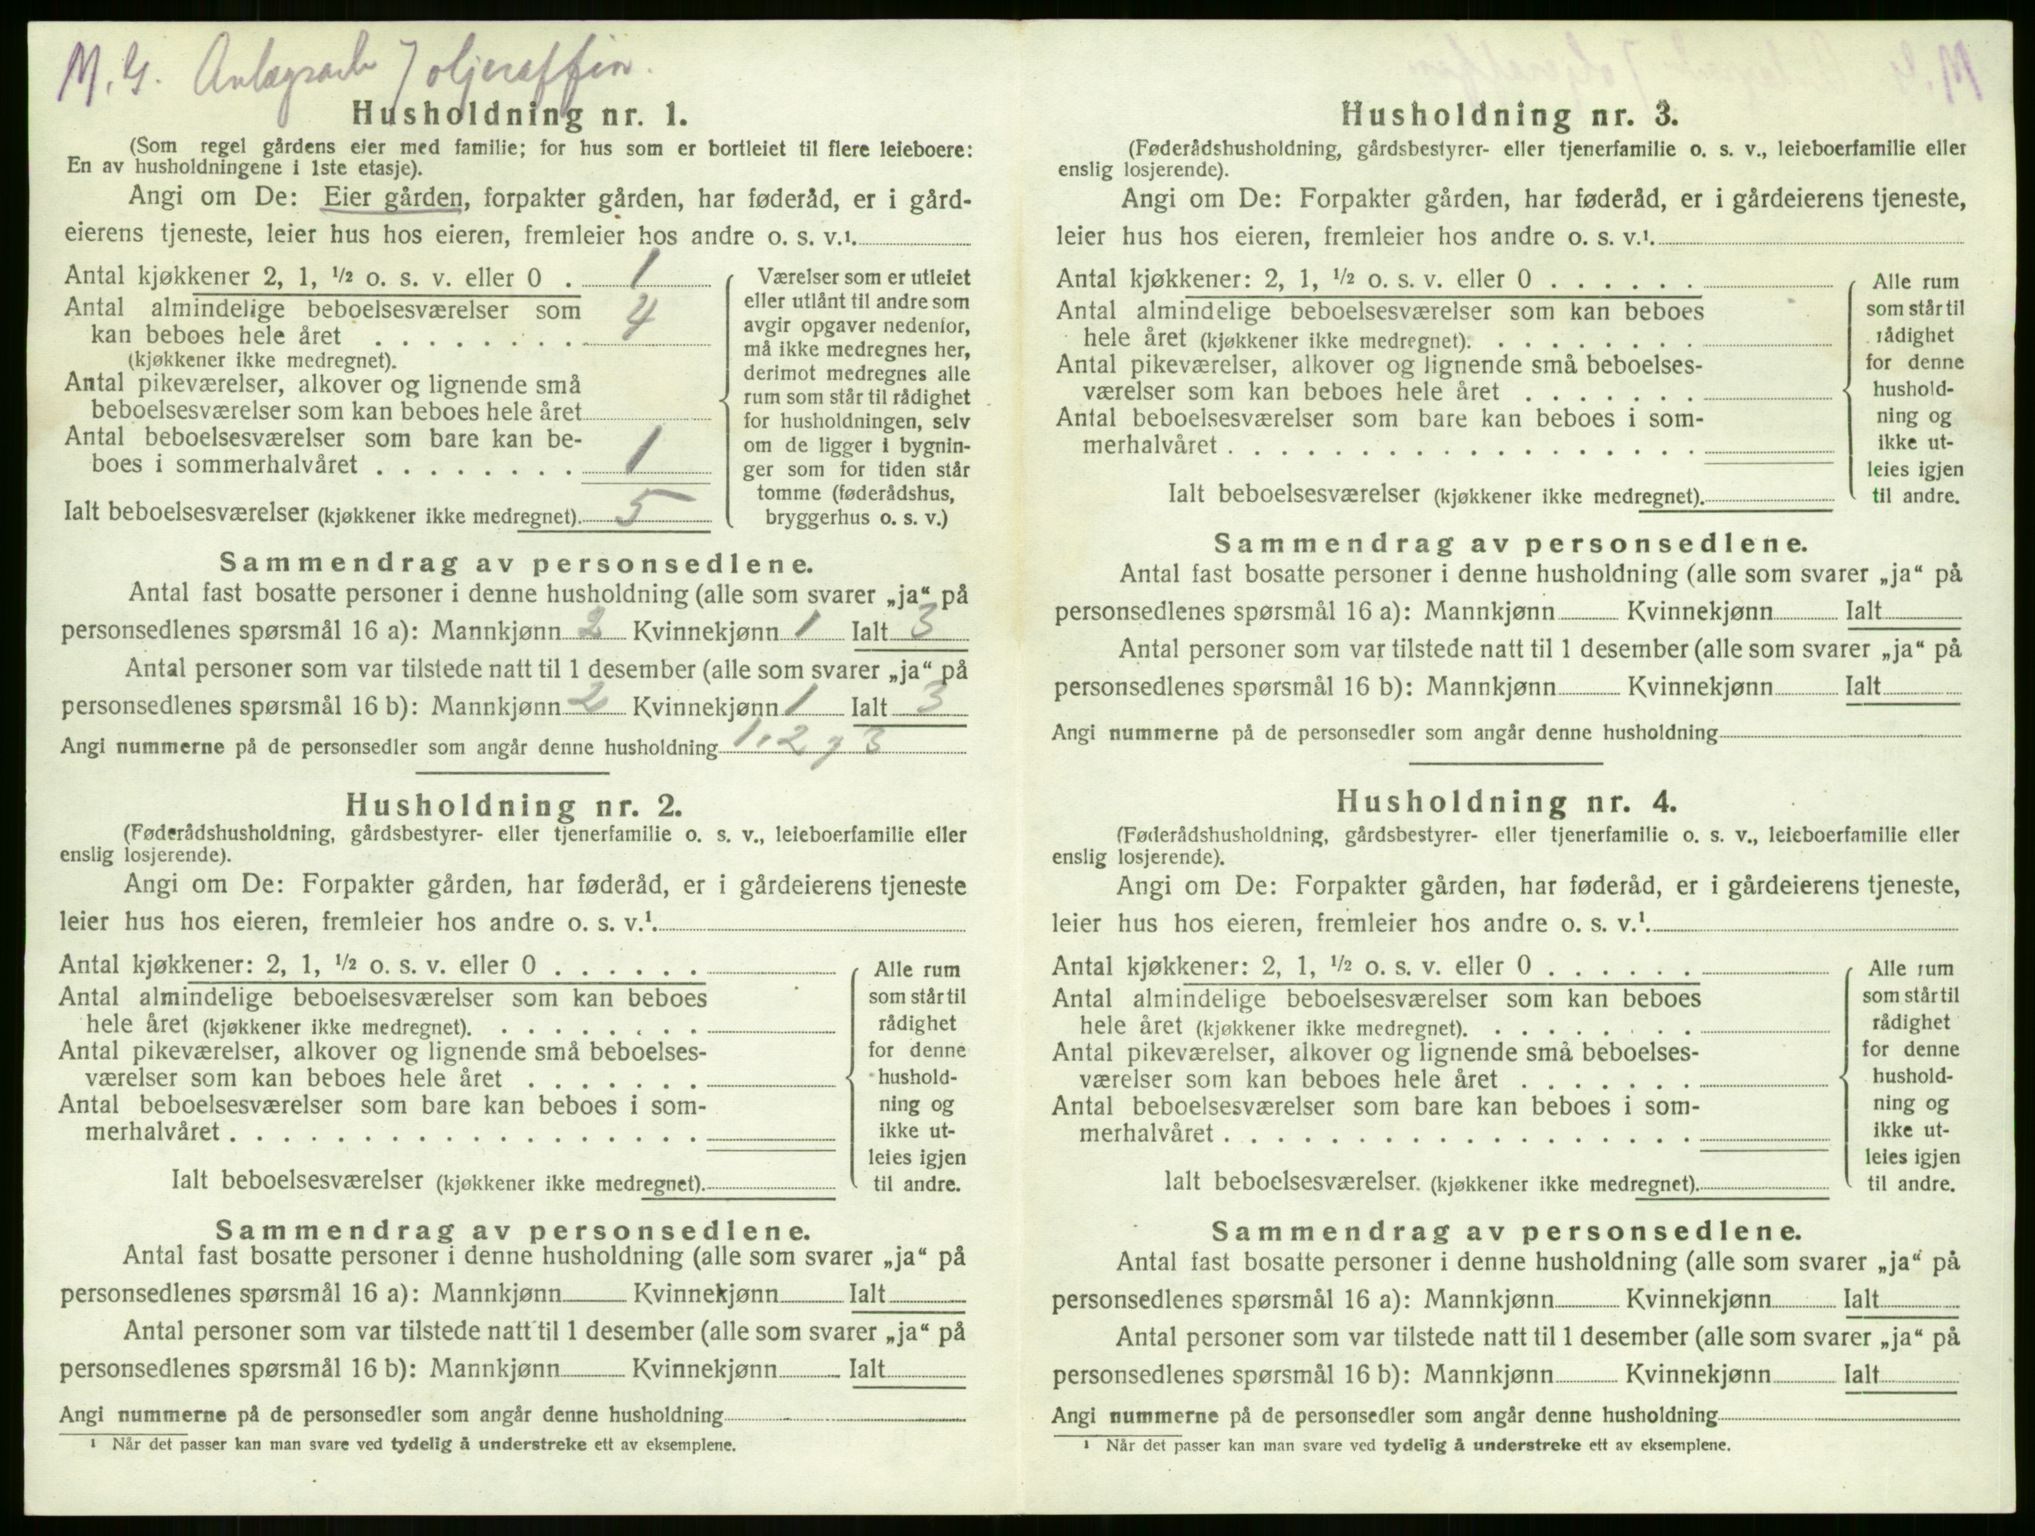 M. G. Anlægsarb. Toljeraffin.
Husholdning nr. 1.
(Som regel gårdens eier med familie; for hus som er bortleiet til flere leieboere:
En av husholdningene i 1ste etasje).
Angi om De: Eier gården, forpakter gården, har føderåd, er i gård-
eierens tjeneste, leier hus hos eieren, fremleier hos andre o. s. v.¹.
Antal kjøkkener 2, 1, ½ o. s. v. eller 0 . 1
Antal almindelige beboelsesværelser som
kan beboes hele året . . . . . . . . 4
(kjøkkener ikke medregnet).
Antal pikeværelser, alkover og lignende små
beboelsesværelser som kan beboes hele året
Antal beboelsesværelser som bare kan be-
boes i sommerhalvåret . . . . . . . . 1
Ialt beboelsesværelser (kjøkkener ikke medregnet). 5
Værelser som er utleiet
eller utlånt til andre som
avgir opgaver nedenfor,
må ikke medregnes her,
derimot medregnes alle
rum som står til rådighet
for husholdningen, selv
om de ligger i bygnin-
ger som for tiden står
tomme (føderådshus,
bryggerhus o. s. v.)
Sammendrag av personsedlene.
Antal fast bosatte personer i denne husholdning (alle som svarer „ja“ på
personsedlenes spørsmål 16 a): Mannkjønn 2 Kvinnekjønn 1 Ialt 3
Antal personer som var tilstede natt til 1 desember (alle som svarer „ja“ på
personsedlenes spørsmål 16 b): Mannkjønn 2 Kvinnekjønn 1 Ialt 3
Angi nummerne på de personsedler som angår denne husholdning 1, 2, 3
Husholdning nr. 2.
(Føderådshusholdning, gårdsbestyrer- eller tjenerfamilie o. s. v., leieboerfamilie eller
enslig losjerende).
Angi om De: Forpakter gården, har føderåd, er i gårdeierens tjeneste
leier hus hos eieren, fremleier hos andre o. s. v.¹.
Antal kjøkkener: 2, 1, ½ o. s. v. eller 0 . . . . . .
Antal almindelige beboelsesværelser som kan beboes
hele året (kjøkkener ikke medregnet). . . . . . . . .
Antal pikeværelser, alkover og lignende små beboelses-
værelser som kan beboes hele året . . . . . . .
Antal beboelsesværelser som bare kan beboes i som-
merhalvåret . . . . . . . . . . . . . . . . . .
Ialt beboelsesværelser (kjøkkener ikke medregnet).
Alle rum
som står til
rådighet
for denne
hushold-
ning og
ikke ut-
leies igjen
til andre.
Sammendrag av personsedlene.
Antal fast bosatte personer i denne husholdning (alle som svarer „ja“ på
personsedlenes spørsmål 16 a): Mannkjønn Kvinnekjønn Ialt
Antal personer som var tilstede natt til 1 desember (alle som svarer „ja“ på
personsedlenes spørsmål 16 b): Mannkjønn Kvinnekjønn Ialt
Angi nummerne på de personsedler som angår denne husholdning
¹ Når det passer kan man svare ved tydelig å understreke ett av eksemplene.
Husholdning nr. 3.
(Føderådshusholdning, gårdsbestyrer- eller tjenerfamilie o. s. v., leieboerfamilie eller
enslig losjerende).
Angi om De: Forpakter gården, har føderåd, er i gårdeierens tjeneste,
leier hus hos eieren, fremleier hos andre o. s. v.¹.
Antal kjøkkener: 2, 1, ½ o. s. v. eller 0 . . . . . .
Antal almindelige beboelsesværelser som kan beboes
hele året (kjøkkener ikke medregnet). . . . . . . . .
Antal pikeværelser, alkover og lignende små beboelses-
værelser som kan beboes hele året . . . . . . .
Antal beboelsesværelser som bare kan beboes i som-
merhalvåret . . . . . . . . . . . . . . . . . .
Ialt beboelsesværelser (kjøkkener ikke medregnet).
Alle rum
som står til
rådighet
for denne
hushold-
ning og
ikke ut-
leies igjen
til andre.
Sammendrag av personsedlene.
Antal fast bosatte personer i denne husholdning (alle som svarer „ja“ på
personsedlenes spørsmål 16 a): Mannkjønn Kvinnekjønn Ialt
Antal personer som var tilstede natt til 1 desember (alle som svarer „ja“ på
personsedlenes spørsmål 16 b): Mannkjønn Kvinnekjønn Ialt
Angi nummerne på de personsedler som angår denne husholdning
Husholdning nr. 4.
(Føderådshusholdning, gårdsbestyrer- eller tjenerfamilie o. s. v., leieboerfamilie eller
enslig losjerende).
Angi om De: Forpakter gården, har føderåd, er i gårdeierens tjeneste,
leier hus hos eieren, fremleier hos andre o. s. v.¹.
Antal kjøkkener: 2, 1, ½ o. s. v. eller 0 . . . . . .
Antal almindelige beboelsesværelser som kan beboes
hele året (kjøkkener ikke medregnet). . . . . . . . .
Antal pikeværelser, alkover og lignende små beboelses-
værelser som kan beboes hele året . . . . . . .
Antal beboelsesværelser som bare kan beboes i som-
merhalvåret . . . . . . . . . . . . . . . . . .
Ialt beboelsesværelser. (kjøkkener ikke medregnet).
Alle rum
som står til
rådighet
for denne
hushold-
ning og
ikke ut-
leies igjen
til andre.
Sammendrag av personsedlene.
Antal fast bosatte personer i denne husholdning (alle som svarer „ja“ på
personsedlenes spørsmål 16 a): Mannkjønn Kvinnekjønn Ialt
Antal personer som var tilstede natt til 1 desember (alle som svarer „ja“ på
personsedlenes spørsmål 16 b): Mannkjønn Kvinnekjønn Ialt
Angi nummerne på de personsedler som angår denne husholdning
¹ Når det passer kan man svare ved tydelig å understreke ett av eksemplene.